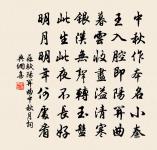 中秋作本名小秦
王入腔即陽關曲
暮雲收盡溢清寒
銀漢無聲轉玉盤
此生此夜不長好
明月明年何處看
蘇軾陽關曲中秋月詞